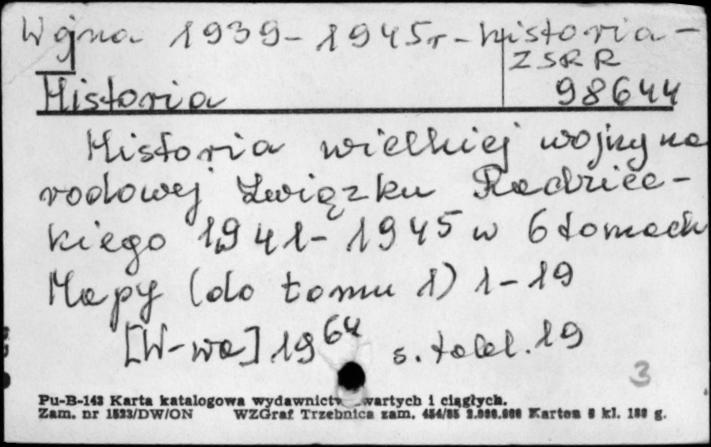 Wojna 1939-1945r-historia-
ZSRR
Historia 98644
Historia wielkiej wojny na
rodowej Związku Radziec-
kiego 1941-1945 w 6 tomach
Mapy (do tomu 1) 1-19
[W-wa] 1964 s. tabl. 19
3
Pu-B-143 Karta katalogowa wydawnictw zwartych i ciągłych.
Zam. nr 1523/DW/ON WZGraf Trzebnica zam. 454/85 2.000.000 Karton 5 kl. 180 g.